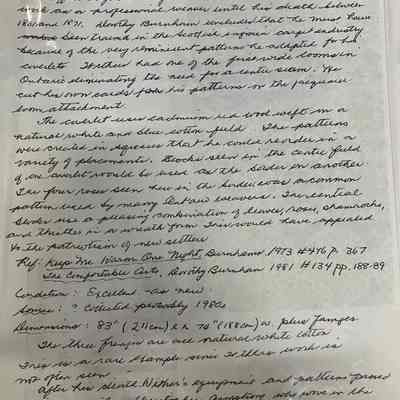 work as a professional weaver until his death between
1861 and 1871. Dorothy Burnham concludes that he must have
been trained in the Scottish ingrain carpet industry
because of the very reminiscent patterns he adapted for his
coverlets had one of the first wide looms in
Ontario eliminating the need for a centre seam. He
cut his own cards for his patterns on the jacquard
loom attachment
The coverlet uses cadmium red wool weft on a
natural white and blue cotton field. The patterns
were created in squares that he could reorder in a
variety of placements. Blocks seen in the centre field
of one coverlet would be used as the border on another.
The four roses seen here in the border was a common
pattern used by many Ontario weavers. The central
blocks use a pleasing combination of leaves, roses, shamrocks,
and thistles in a wreath form. This would have appealed
to the patriotism of new settlers
Ref: Keep Me Warm One Night, Burnhams 1973 #476 p. 367
The Comfortable Arts, Dorothy Burnham 1981 #134 pp. 188-89
Condition: Excellent - as new
Source: ? Collected probably 1980s
Dimensions: 83" (211cm) L x 74" (188cm) w. plus fringes
The three fringes are all natural white cotton
This is a rare example since work is
not often seen
After his death equipment and patterns passed
Armstrong who wove in the